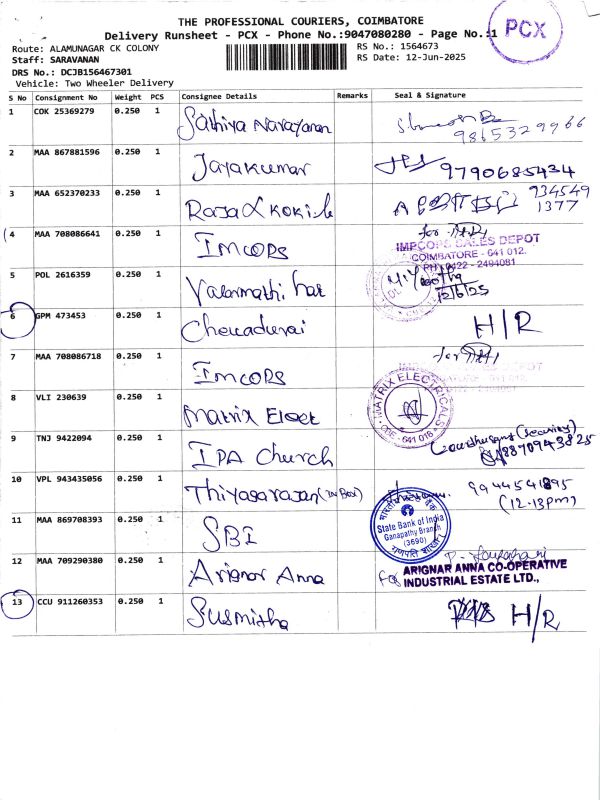 THE PROFESSIONAL COURIERS, COIMBATORE
Delivery Runsheet - PCX - Phone No.:9047080280 - Page No.:1
PCX
Route: ALAMUNAGAR CK COLONY
RS No.: 1564673
Staff: SARAVANAN
RS Date: 12-Jun-2025
DRS No.: DCJB156467301
Vehicle: Two Wheeler Delivery
S No Consignment No Weight PCS Consignee Details Remarks Seal & Signature
1 COK 25369279 0.250 1 Sathiya Narayanan 9865329966
2 MAA 867881596 0.250 1 Jayakumar 9790685434
3 MAA 652370233 0.250 1 Raja 934549
1377
4 MAA 708086641 0.250 1 Imcops for
IMPCOPS SALES DEPOT
COIMBATORE - 641 012.
PH: 0422 - 2494081
5 POL 2616359 0.250 1 Valarmathi
12/6/25
6 GPM 473453 0.250 1 Chelladurai H/R
7 MAA 708086718 0.250 1 Imcops for
8 VLI 230639 0.250 1 Matrix Elect
MATRIX ELECTRICALS
CBE - 641 016
9 TNJ 9422094 0.250 1 IPA Church (Security)
8870943825
10 VPL 943435056 0.250 1 Thiyagarajan (in Box) 9944541895
(12.13pm)
11 MAA 869708393 0.250 1 SBI
भारतीय स्टेट बैंक
State Bank of India
Ganapathy Branch
(3690)
गणपति शाखा
12 MAA 709290380 0.250 1 Arignar Anna
For ARIGNAR ANNA CO-OPERATIVE
INDUSTRIAL ESTATE LTD.,
13 CCU 911260353 0.250 1 Susmitha H/R